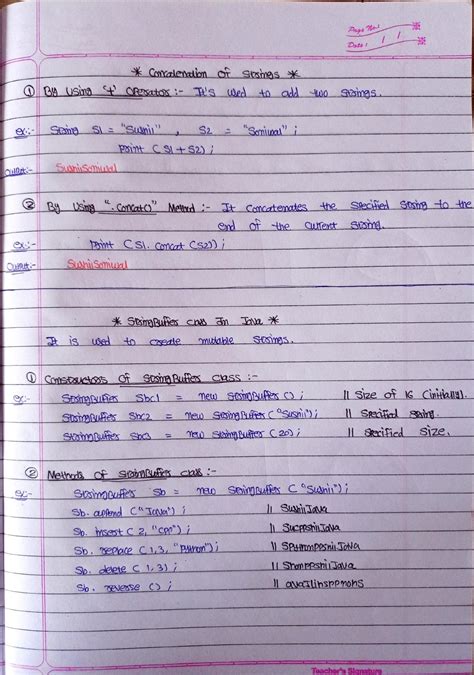 Page No.:
Date: / /
* Concatenation of Strings *
① By Using '+' Operator :- It's used to add two strings.
ex:- String S1 = "Sushii" , S2 = "Semiwal" ;
Print (S1 + S2) ;
Output:- SushiiSemiwal
② By Using ".Concat()" Method :- It Concatenates the specified string to the
end of the current string.
ex:- Print (S1. Concat (S2)) ;
Output:- SushiiSemiwal
* StringBuffer class In Java *
It is used to create mutable strings.
① Constructors of StringBuffer class :-
ex:- StringBuffer Sbc1 = new StringBuffer () ; || Size of 16 (initially).
StringBuffer Sbc2 = new StringBuffer ("Sushii") ; || Specified string.
StringBuffer Sbc3 = new StringBuffer (20) ; || Specified Size.
② Methods of StringBuffer class :-
ex:- StringBuffer Sb = new StringBuffer ("Sushii") ;
Sb. append ("Java") ; || SushiiJava
Sb. insert (2, "cpp") ; || SucppshiiJava
Sb. replace (1, 3, "Python") ; || SPythonppshiiJava
Sb. delete (1, 3) ; || ShonppshiiJava
Sb. reverse () ; ||
Teacher's Signature